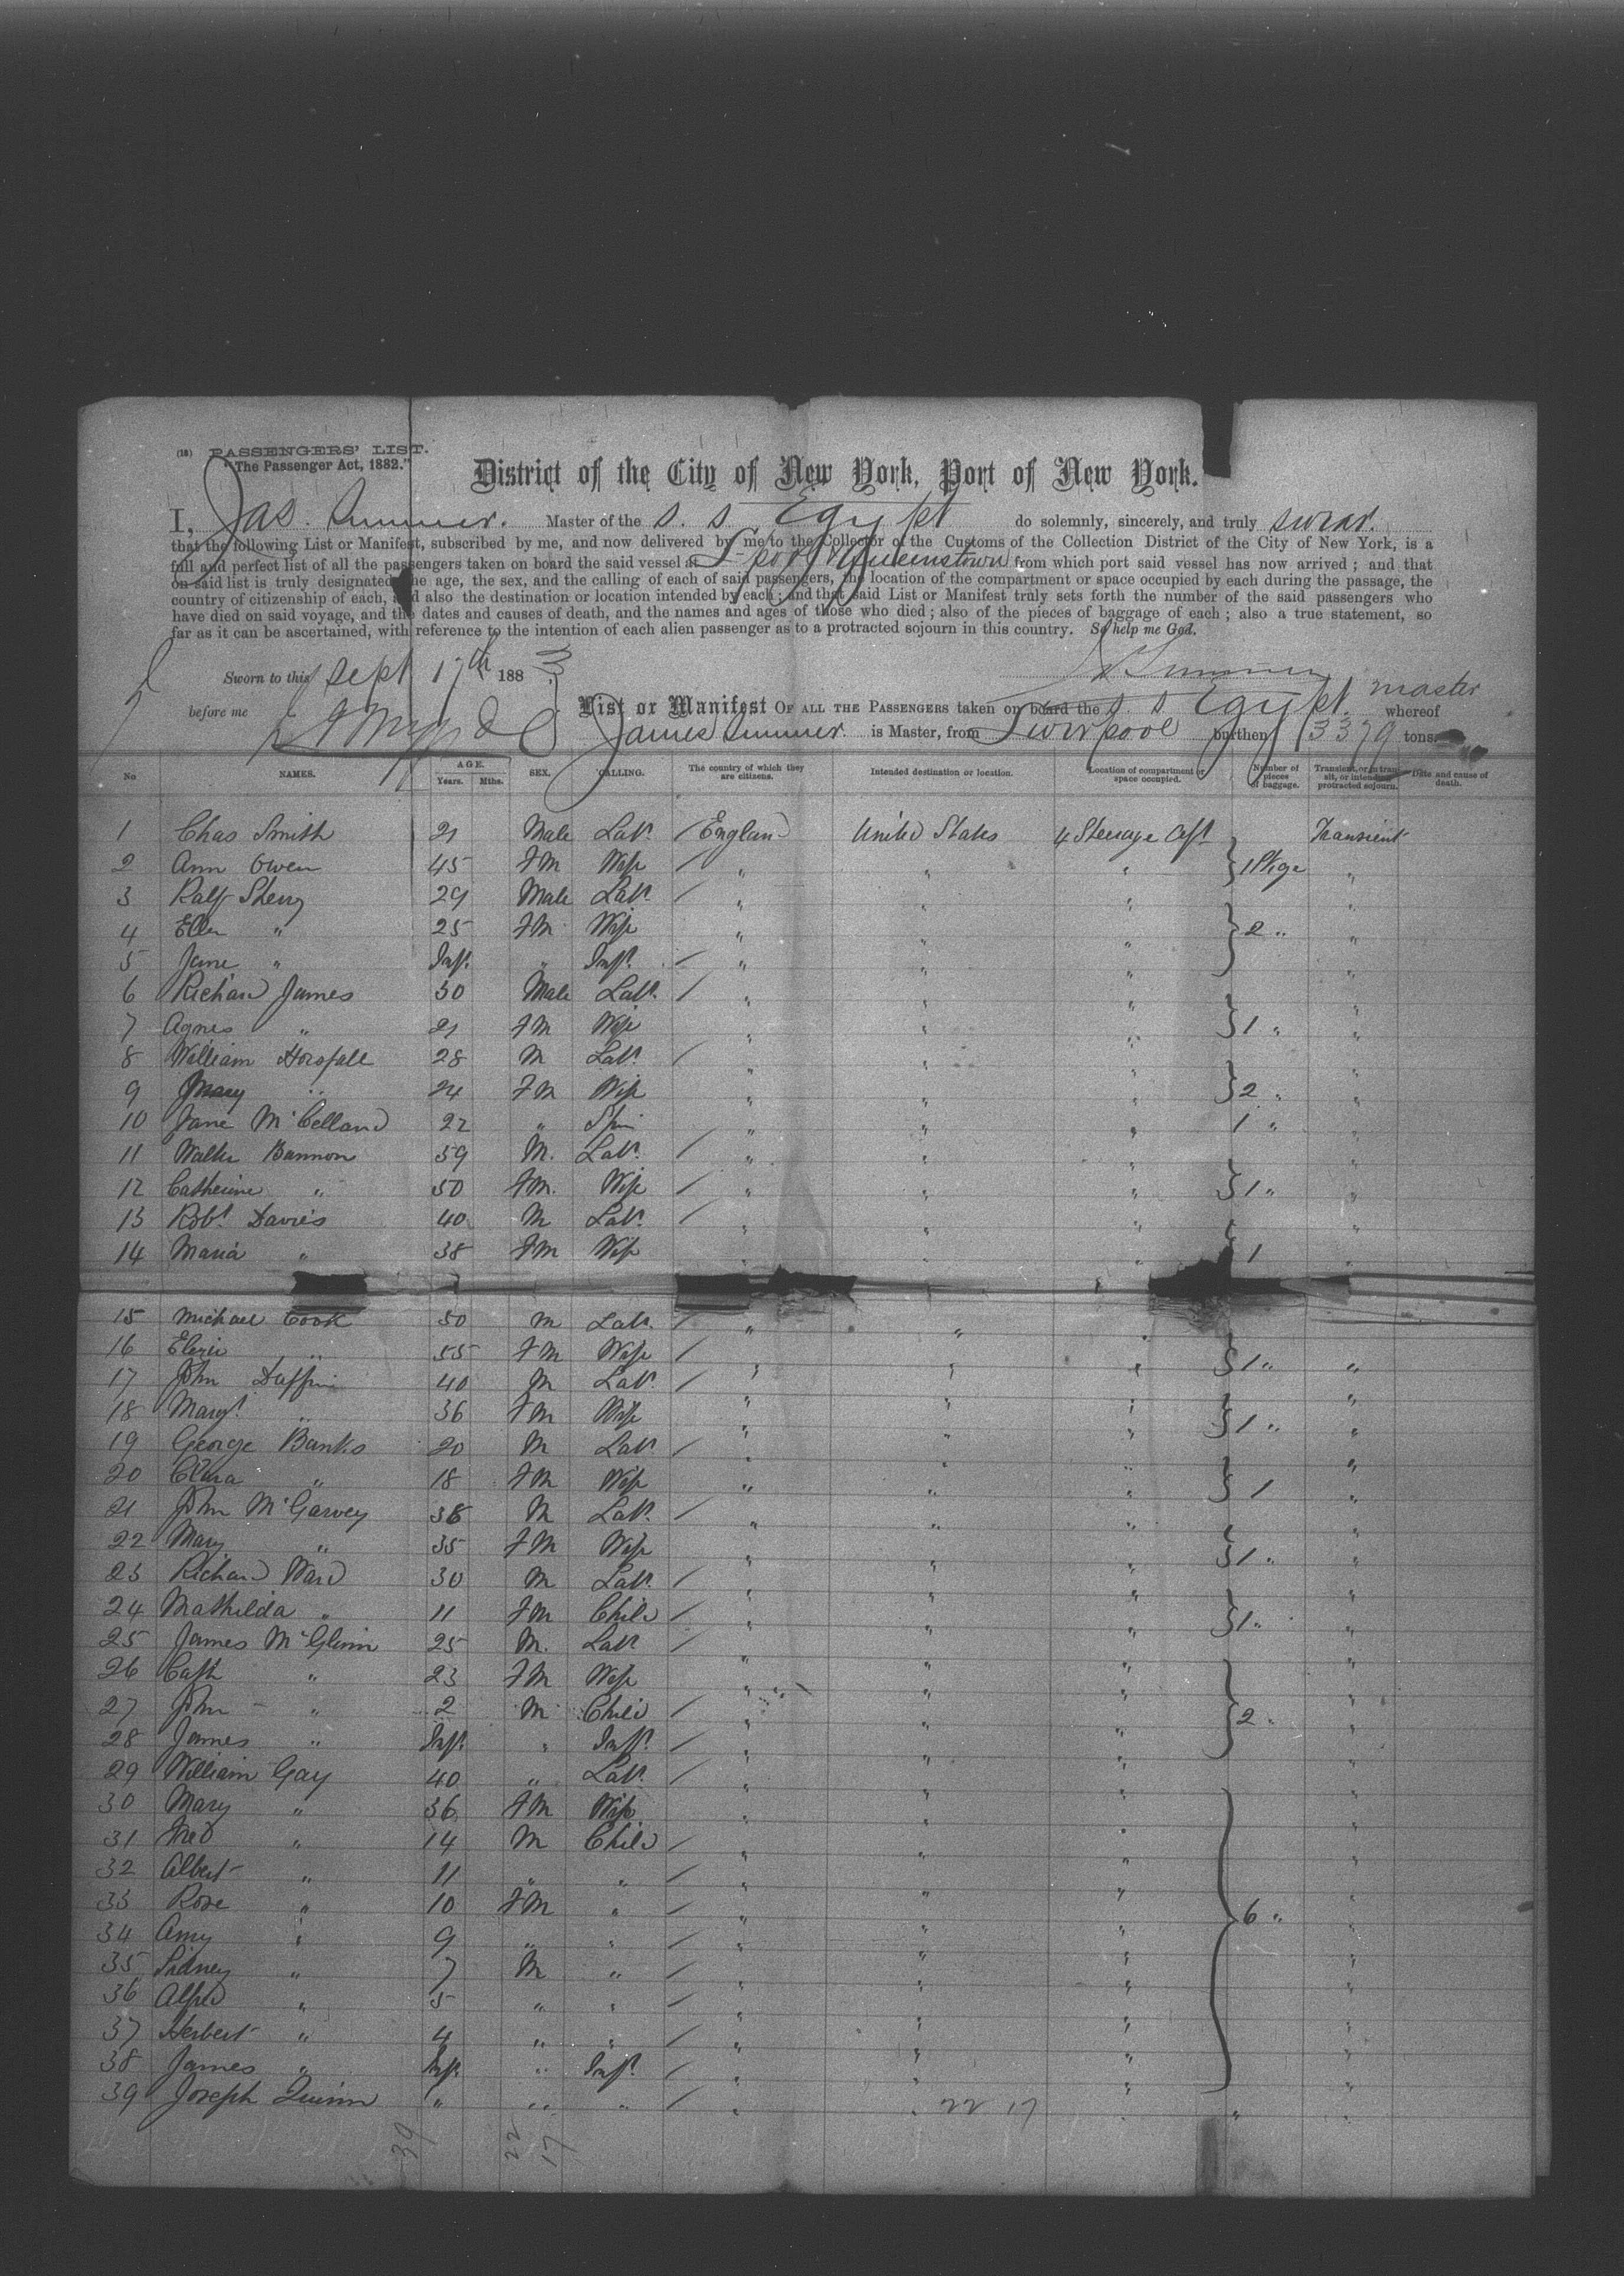 (18) PASSENGERS' LIST.
"The Passenger Act, 1882."
District of the City of New York, Port of New York.
I, Jas. Summer. Master of the s. s. Egypt do solemnly, sincerely, and truly swear.
that the following List or Manifest, subscribed by me, and now delivered by me to the Collector of the Customs of the Collection District of the City of New York, is a
full and perfect list of all the passengers taken on board the said vessel at L'pool & Queenstown from which port said vessel has now arrived; and that
on said list is truly designated the age, the sex, and the calling of each of said passengers, the location of the compartment or space occupied by each during the passage, the
country of citizenship of each, and also the destination or location intended by each; and that said List or Manifest truly sets forth the number of the said passengers who
have died on said voyage, and the dates and causes of death, and the names and ages of those who died; also of the pieces of baggage of each; also a true statement, so
far as it can be ascertained, with reference to the intention of each alien passenger as to a protracted sojourn in this country. So help me God.
Sworn to this Sept 17th 1883
before me
List or Manifest OF ALL THE PASSENGERS taken on board the s. s. Egypt. master whereof
James Summer. is Master, from Liverpool burthen 3379 tons.
No NAMES. AGE. Years. Mths. SEX. CALLING. The country of which they are citizens. Intended destination or location. Location of compartment or space occupied. Number of pieces of baggage. Transient, or in transit, or intending protracted sojourn. Date and cause of death.
1 Chas Smith 21 Male Labr. / England United States 4 Steerage Aft Transient
2 Ann Owen 45 Fm Wife / " " " } 1 Pkge "
3 Ralf Sherry 29 Male Labr. / " " " "
4 Ellen " 25 Fm Wife " " " } 2 " "
5 Jane " Inft. " Inft. / " " " "
6 Richard James 30 Male Labr. / " " " "
7 Agnes " 21 Fm Wife " " " } 1 " "
8 William Horsfall 28 M Labr. / " " " "
9 Mary " 24 Fm Wife " " " } 2 " "
10 Jane McCelland 22 " Spin " " " 1 " "
11 Walter Bannon 59 M. Labr. / " " " "
12 Catherine " 50 Fm. Wife / " " " } 1 " "
13 Robt. Davies 40 M Labr. / " " " "
14 Maria " 38 Fm Wife " " " } 1 "
15 Michael Cook 50 M Labr. / " " "
16 " 55 Fm Wife / " " " } 1 " "
17 John 40 M Labr. / " " " "
18 Margt. " 36 Fm Wife " " " } 1 " "
19 George Banks 20 M Labr / " " " "
20 Clara " 18 Fm Wife " " " } 1 "
21 John McGarvey 38 M Labr. / " " " "
22 Mary " 35 Fm Wife " " " } 1 " "
23 Richard Ward 30 M Labr. / " " " "
24 Mathilda " 11 Fm Child / " " " } 1 " "
25 James McGlinn 25 M. Labr / " " " "
26 Cath " 23 Fm Wife " " " "
27 John " 2 M Child / " " " } 2 " "
28 James " Inft. " Inft. / " " " "
29 William Gay 40 " Labr. / " " " "
30 Mary " 36 Fm Wife " " " "
31 Fred " 14 M Child / " " " "
32 Albert " 11 " " / " " " "
33 Rose " 10 Fm " / " " " } 6 " "
34 Amy " 9 " " / " " " "
35 Sidney " 7 M " / " " " "
36 Alfred " 5 " " / " " "
37 Herbert " 4 " " / " " " "
38 James " Inft. " Inft. / " " " "
39 Joseph Quinn " " " / " " " "
22 17
39 22 17